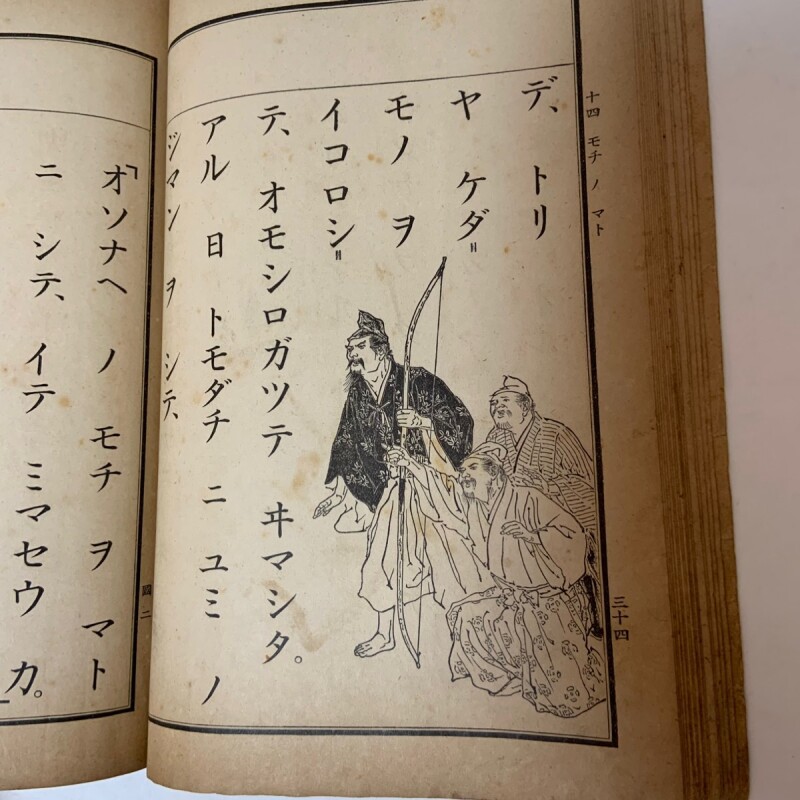 十四 モチ ノ マト
三十四
デ、トリ
ヤ ケダ〓
モノ ヲ
イコロシ〓
テ、オモシロガツテ ヰマシタ。
アル 日 トモダチ ニ ユミ ノ
ジマン ヲ シテ、
「オソナヘ ノ モチ ヲ マト
ニ シテ、イテ ミマセウ カ。」
四二